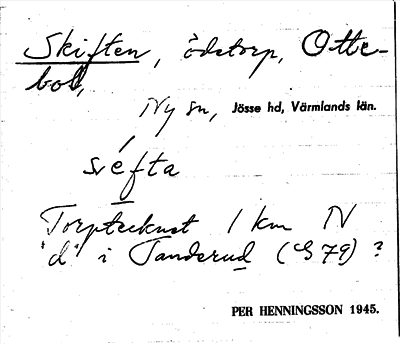 Skiften, ödetorp, Otte-
bol,
Ny sn, Jösse hd, Värmlands län.
svéfta
Torptecknet 1 km N
"d" i Tanderud (G 79) ?
PER HENNINGSSON 1945.